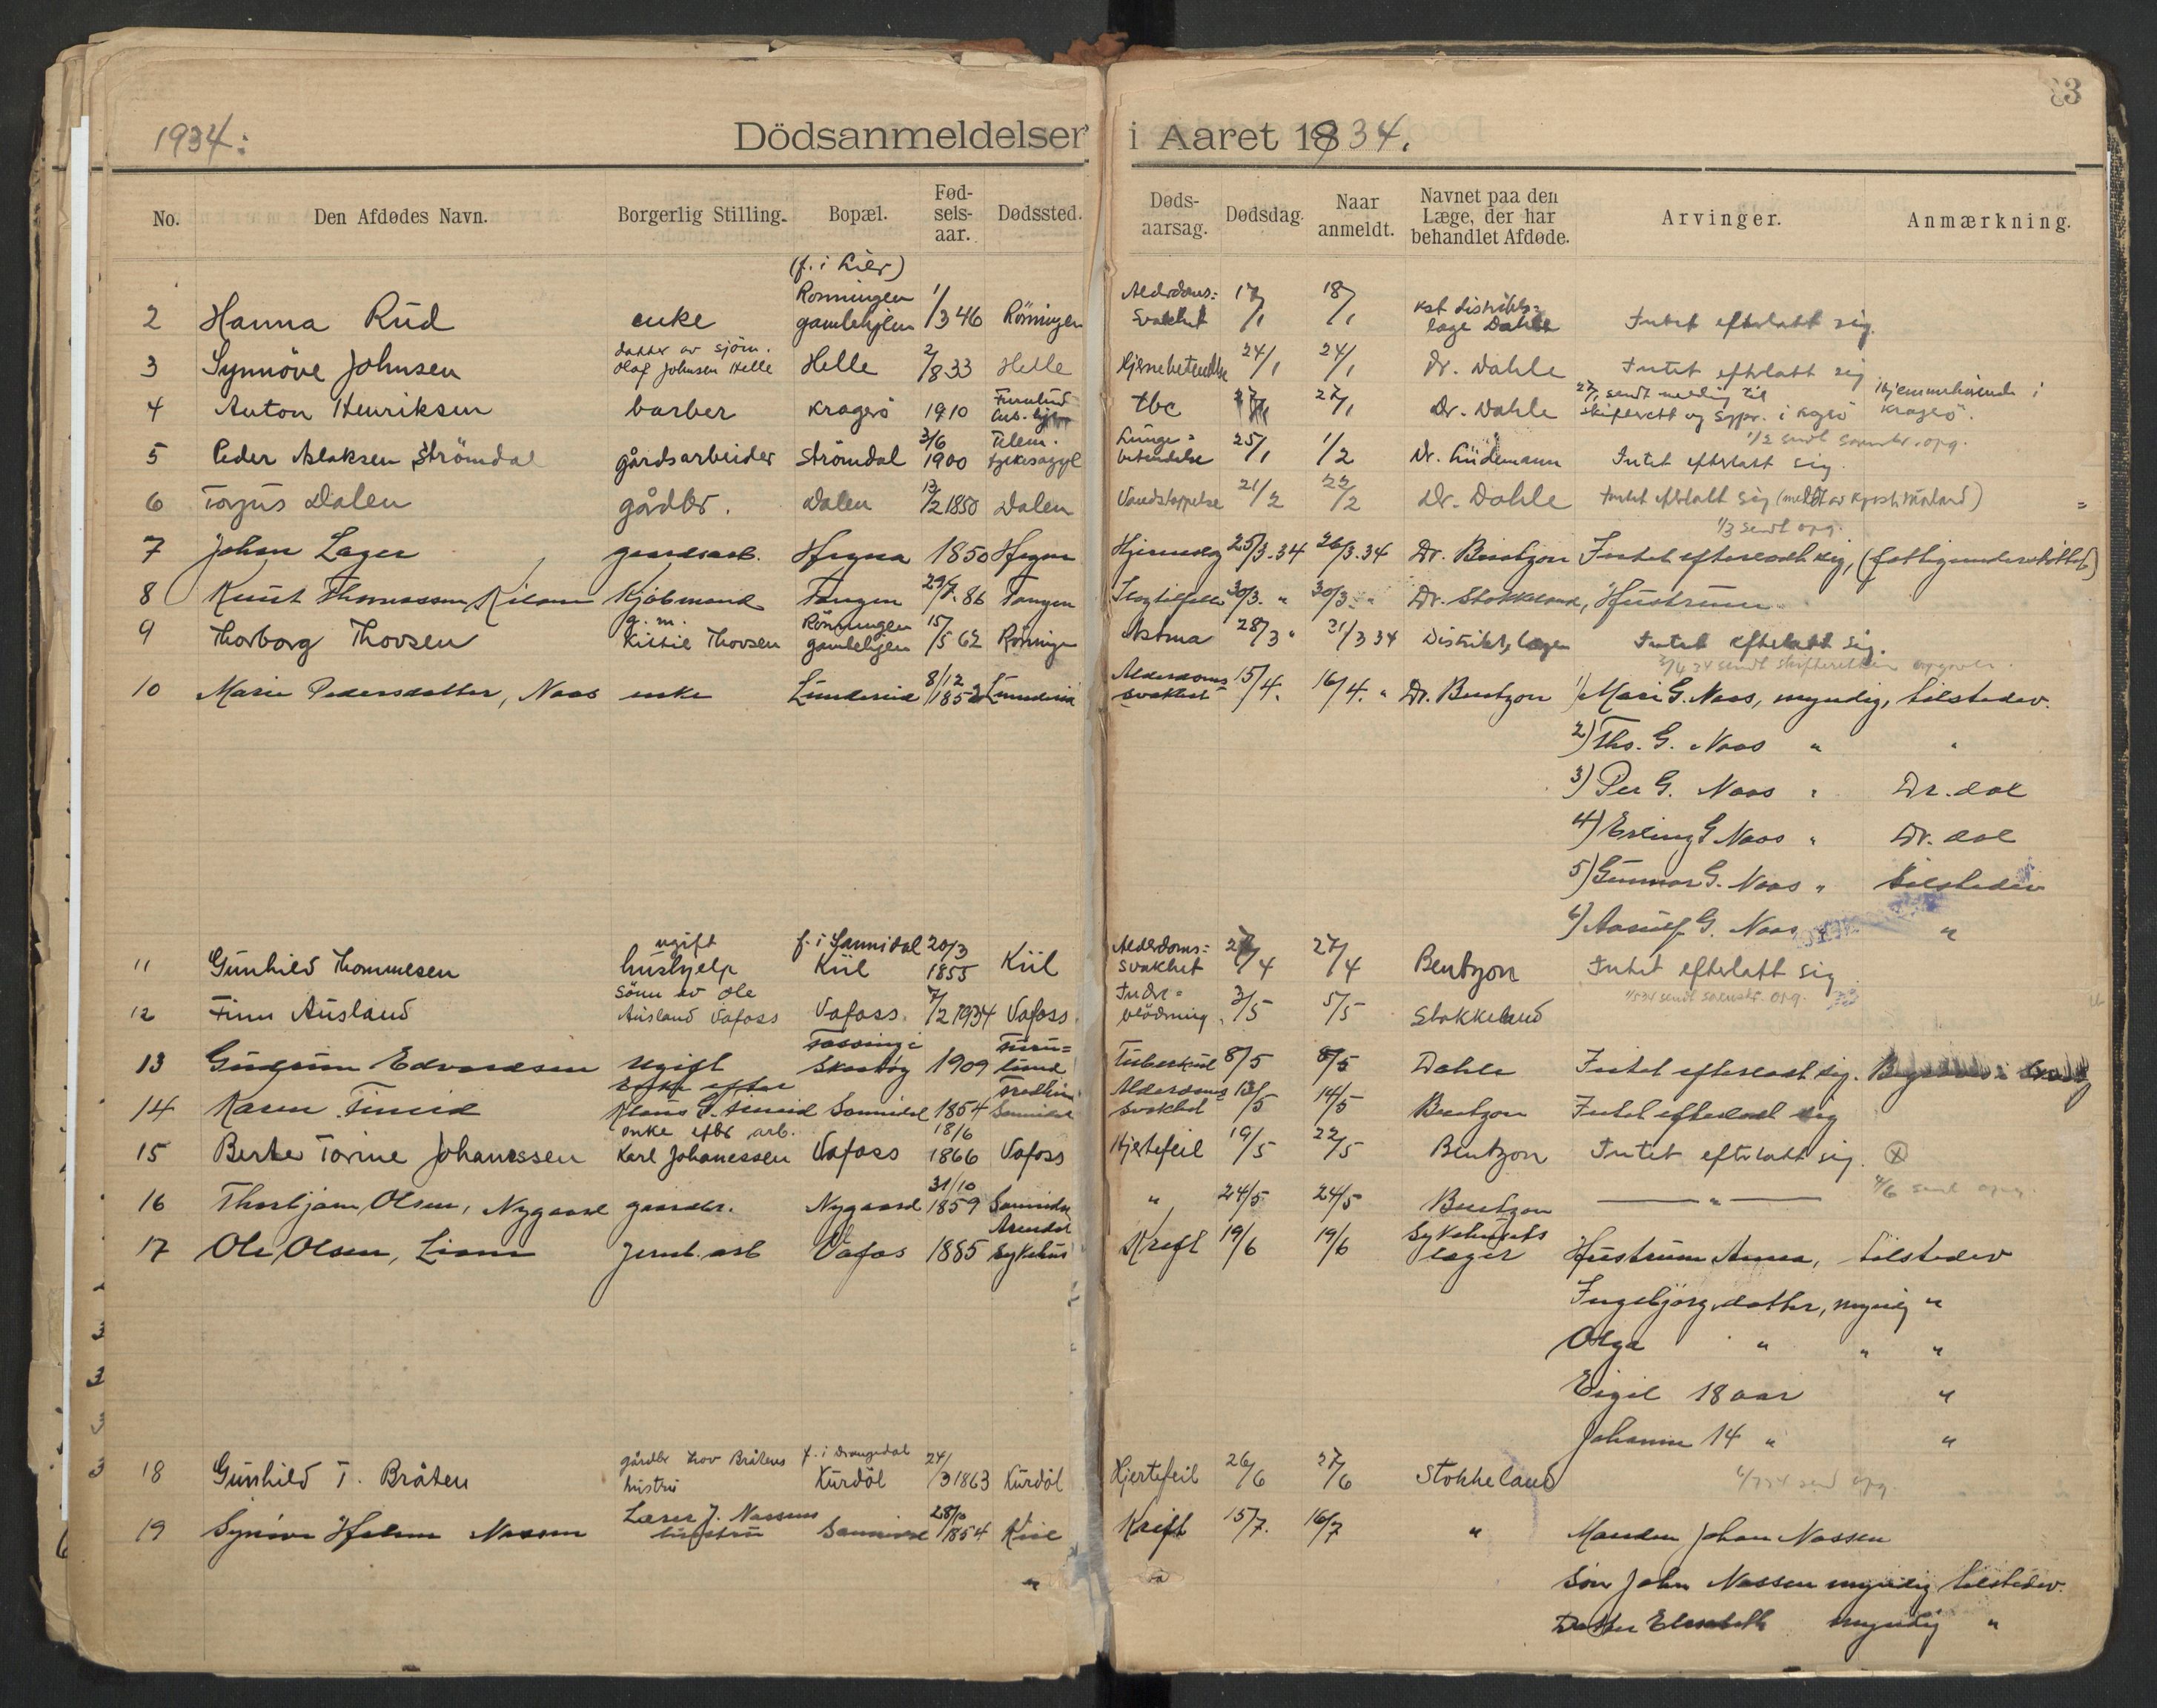 83
1934:
Dödsanmeldelser i Aaret 1934.
No. Den Afdødes Navn. Borgerlig Stilling. Bopæl. Fød-sels-aar. Dødssted. Døds-aarsag. Dødsdag. Naar anmeldt. Navnet paa den Læge, der har behandlet Afdøde. Arvinger. Anmærkning.
(f. i Lier)
Rønningen
2 Hanna Rud enke gamlehjem 1/3 46 Rönningen Alderdoms= svakhet 17/1 18/1 kst distrikts= læge Dahle Intet efterlatt sig.
datter av sjöm.
3 Synnöve Johnsen Olaf Johnsen Helle Helle 2/8 33 Helle Hjernebetendelse 24/1 24/1 Dr. Dahle Intet efterlatt sig
27/1 sendt melding til Hjemmehörende i
4 Anton Henriksen barber Kragerö 1910 Furulund tub. hjem tbc 27/1 27/1 Dr. Dahle skifterett og i Kragerö.
1/2 sendt opg.
5 Peder Aslaksen Strömdal gårdsarbeider Strömdal 3/6 1900 Telem. Lunge= betendelse 25/1 1/2 Dr. Lüdemann Intet efterlatt sig.
6 Torjus Dalen gårdbr. Dalen 12/2 1850 Dalen Vandstoppelse 21/2 22/2 Dr. Dahle Intet efterlatt sig
1/3 sendt opg.
7 Johan Lager gaardsarb. 1850 25/3.34 26/3.34 Dr. Bentzon Intet efterladt sig, (fattigunderstöttet)
8 Knut Thomassen Kjöbmand Tangen 29/7.86 Tangen Slagtilfelle 30/3. " 30/3. " Dr. Stokkeland, Hustruen
g. m. Rönningen
9 Thorborg Thovsen Kittil Thovsen gamlehjem 15/5 62 Rönningen Astma 28/3 " 31/3 34 Distriktslægen Intet efterlatt sig.
sendt skifteretten opgave
10 Marie Pedersdatter, Naas enke Lundereid 8/12 1852 Lundereid Alderdoms= svakhet 15/4. 16/4. " Dr. Bentzon 1) Mari G. Naas, myndig, tilstedev.
2) Ths. G. Naas " "
3) Per G. Naas " Dr. dal
4) Erling G Naas " Dr. dal
5) Gunnar G. Naas " tilstedev
6) Aasulf G. Naas "
ugift f. i Sannidal
11 Gunhild Thommesen hushjelp Kiil 20/3 1855 Kiil Alderdoms= svakhet 27/4 27/4 Bentzon Intet efterlatt sig
sönn av Ole
12 Finn Ausland Ausland Vafoss Vafoss 7/2 1934 Vafoss Indre= blödning 3/5 5/5 Stokkeland
13 Gudrun Edvardsen ugift 1909 Furu= lund Tuberkul 8/5 8/5 Dahle Intet efterladt sig.
Enke efter
14 Karen Sannidal 1854 Sannidal Alderdoms= svakhet 13/5 14/5 Bentzon Intet efterladt sig
enke efter arb.
15 Berte Torine Johanessen Karl Johanessen Vafoss 18/6 1866 Vafoss Hjertefeil 19/5 22/5 Bentzon Intet efterlatt sig.
16 Thorbjørn Olsen, Nygaard gaardbr. Nygaard 31/10 1859 Sannidal " 24/5 24/5 Bentzon — " —
17 Ole Olsen, Liane Jernb. arb Vafos 1885 Arendal Sykehus Kreft 19/6 19/6 Sykehusets læger Hustruen Anna, tilstedev
Ingebjörg, datter, myndig "
Olga " " "
Eigil 18 aar "
Johanne 14 " "
gårdbr Tov Bråtens f. i Drangedal
18 Gunhild T. Bråten hustru Kurdöl 24/3 1863 Kurdöl Hjertefeil 26/6 27/6 Stokkeland
19 Nassen hustru Sannidal 28/10 1854 Kiil Kreft 15/7. 16/7 " Manden Johan Nassen
Sön John Nassen myndig tilstedev.
Datter Elisabeth myndig "